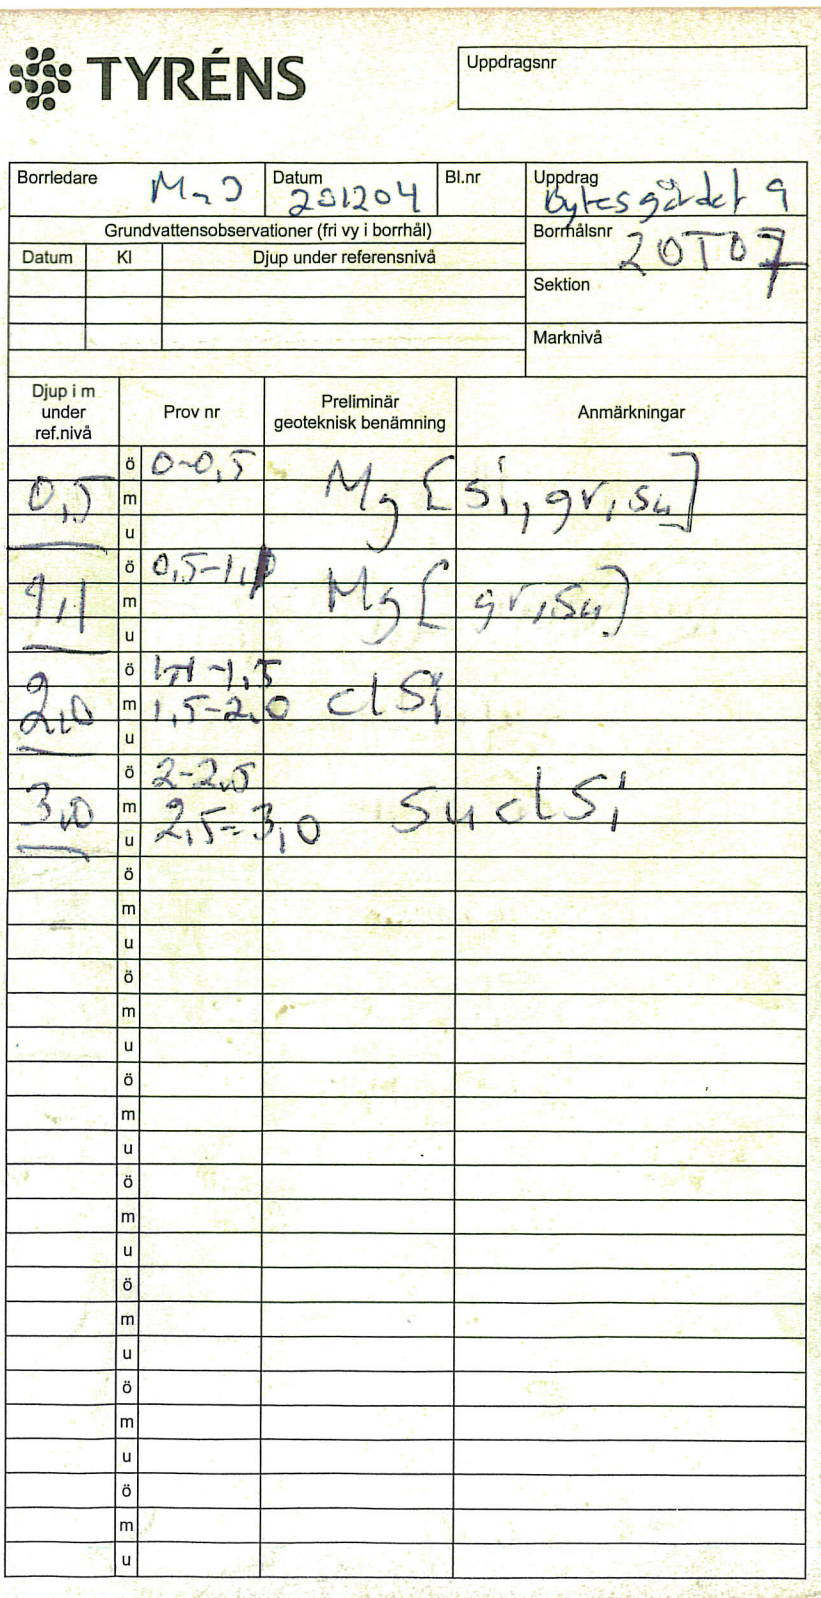 TYRÉNS
Uppdragsnr
Borrledare
Datum 201204
Bl.nr
Uppdrag Bytesgårdet 9
Grundvattensobservationer (fri vy i borrhål)
Borrhålsnr 20T07
Datum Kl Djup under referensnivå
Sektion
Marknivå
Djup i m under ref.nivå
Prov nr
Preliminär geoteknisk benämning
Anmärkningar
ö 0-0,5
0,5 m Mg [si, gr, sa]
u
ö 0,5-1,1
1,1 m Mg [gr, sa]
u
ö 1,1-1,5
2,0 m 1,5-2,0 clSi
u
ö 2-2,5
3,0 m 2,5-3,0 saclSi
u
ö
m
u
ö
m
u
ö
m
u
ö
m
u
ö
m
u
ö
m
u
ö
m
u